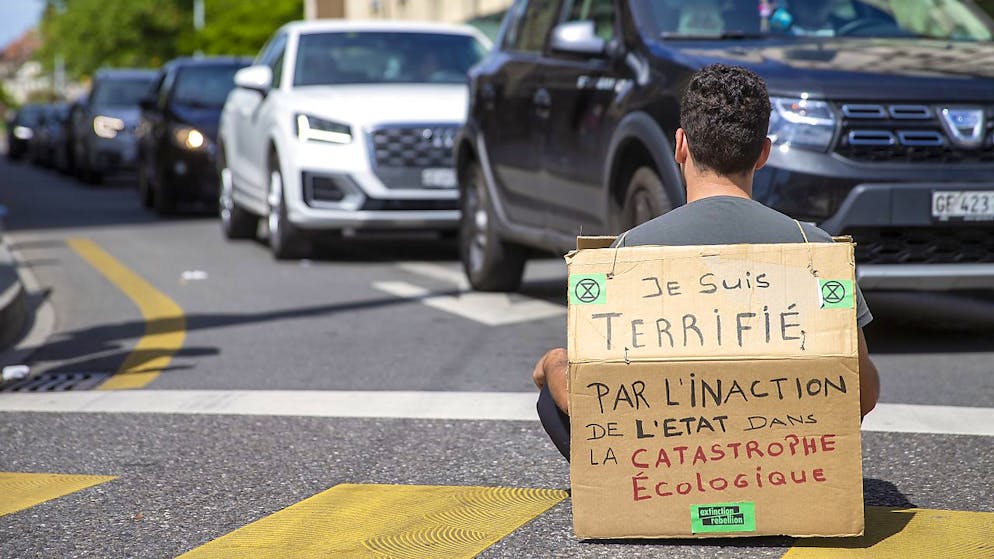 Je Suis
TERRIFIÉ
PAR L'INACTION
DE L'ETAT DANS
LA CATASTROPHE
ÉCOLOGIQUE
extinction
rebellion
GE 423